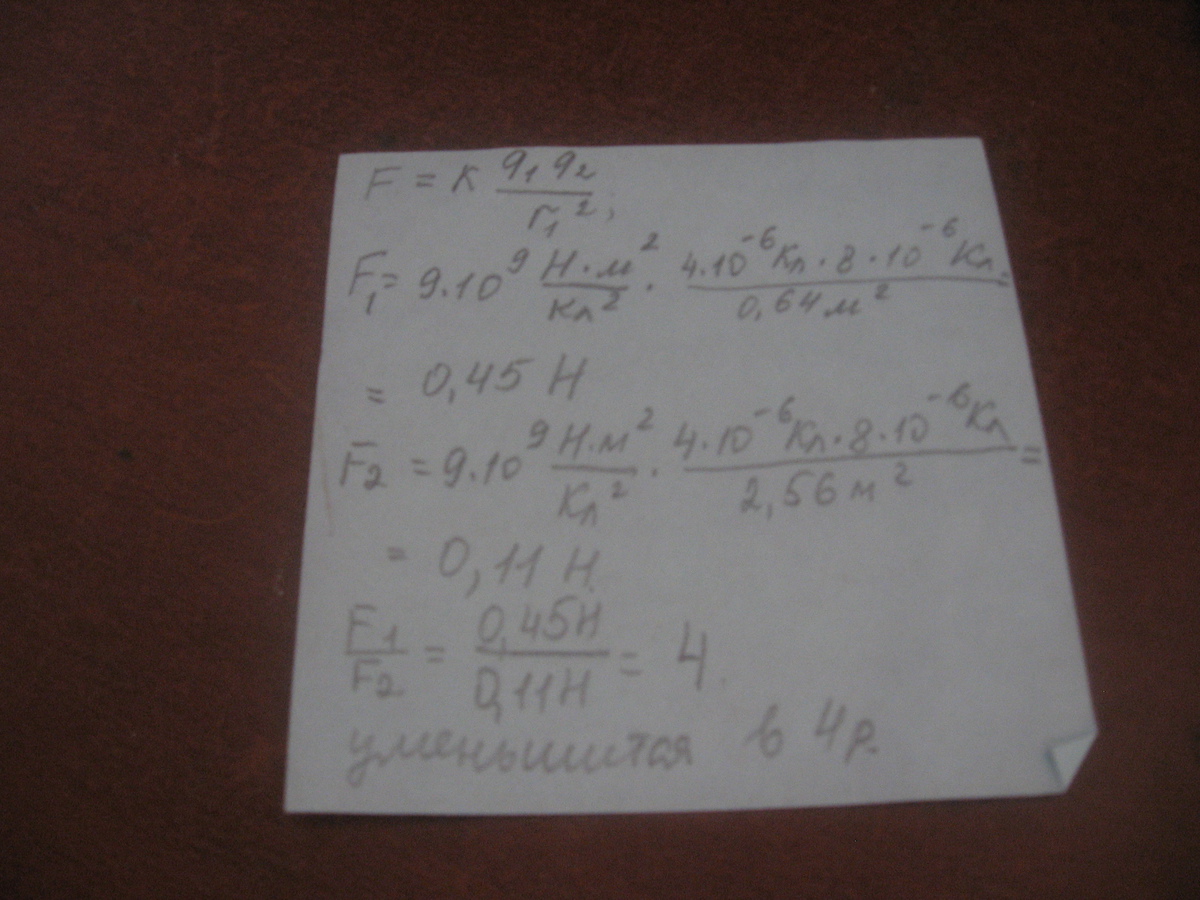 F = к q₁ q₂ / r₁² ;
F₁ = 9·10⁹ Н·м² / кл² · 4·10⁻⁶Кл·8·10⁻⁶Кл / 0,64 м² =
= 0,45 Н
F₂ = 9·10⁹ Н·м² / Кл² · 4·10⁻⁶Кл·8·10⁻⁶Кл / 2,56 м² =
= 0,11 Н
F₁ / F₂ = 0,45Н / 0,11Н = 4
уменьшится в 4 р.